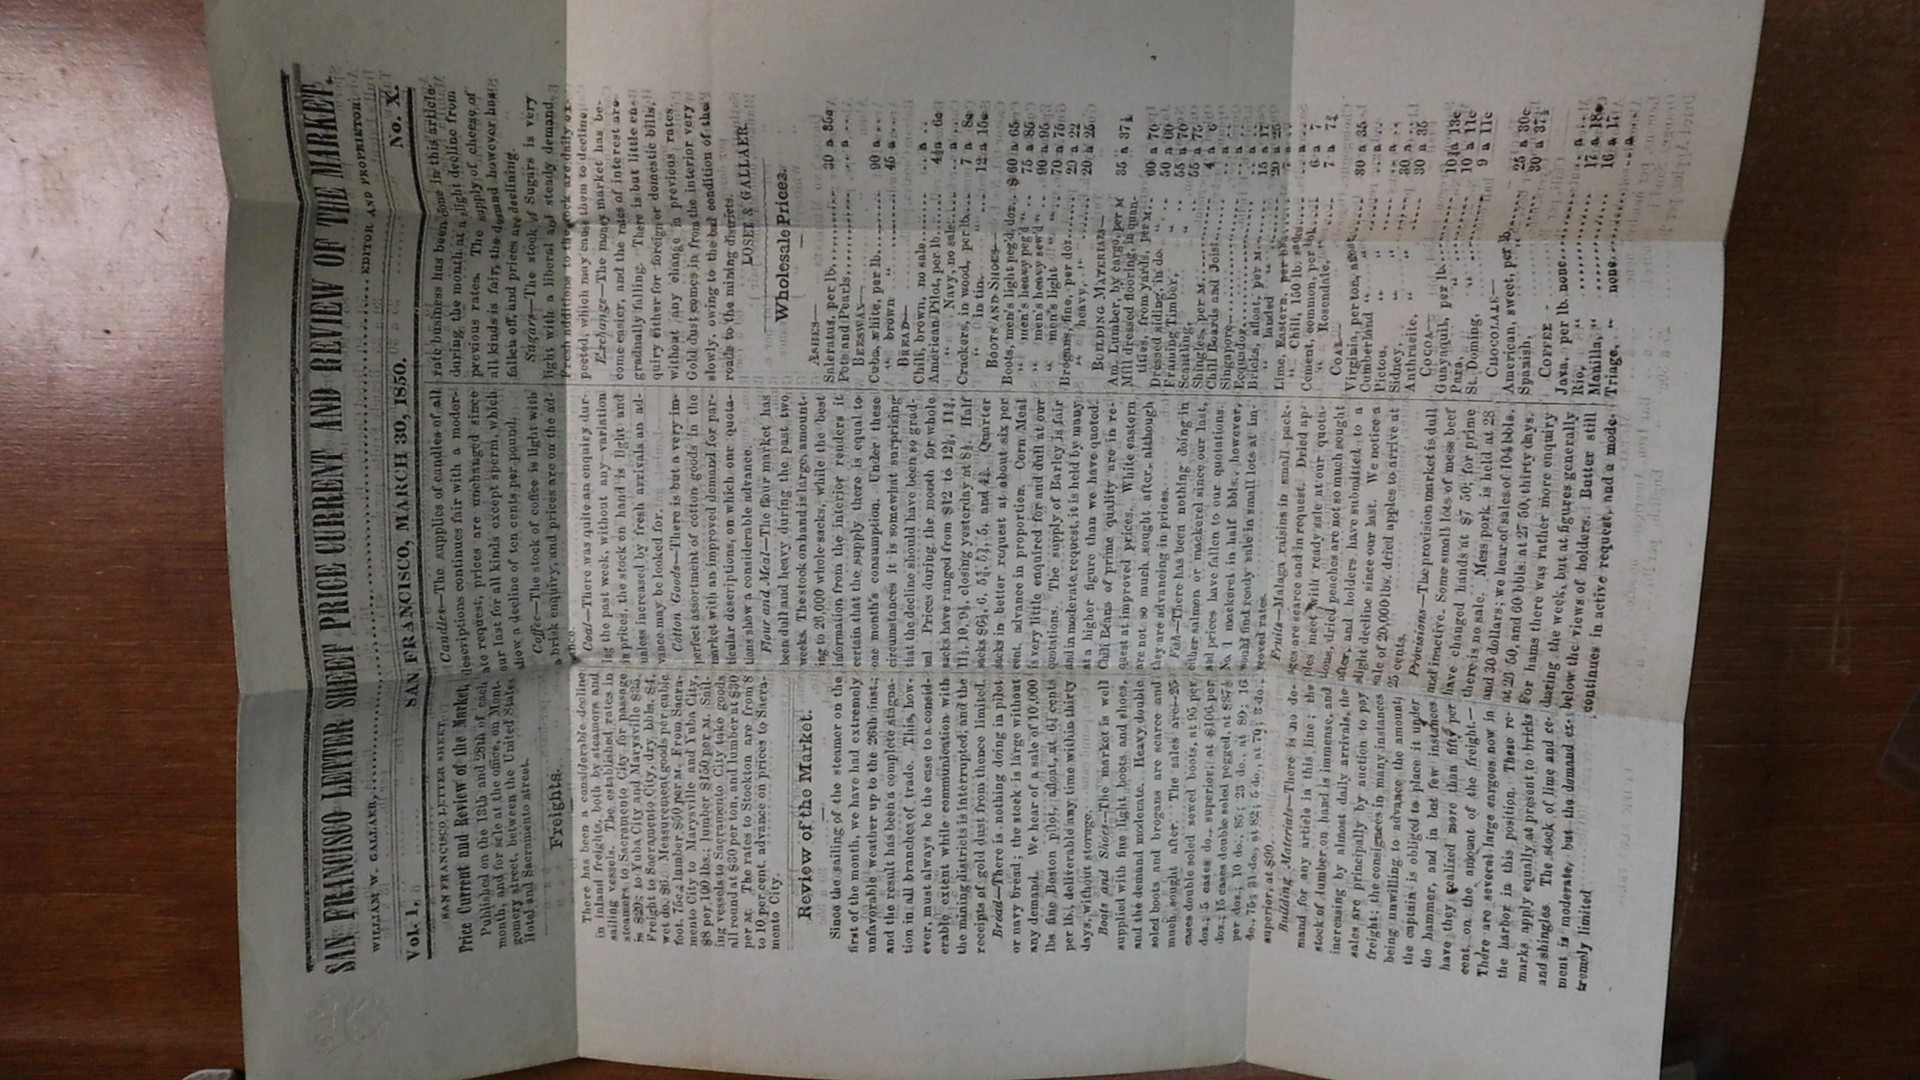 SAN FRANCISCO LETTER SHEET PRICE CURRENT AND REVIEW OF THE MARKET.
WILLIAM W. GALLAER, EDITOR AND PROPRIETOR.
Vol. 1. SAN FRANCISCO, MARCH 30, 1850. No. X.
SAN FRANCISCO LETTER SHEET
Price Current and Review of the Market,
Published on the 13th and 28th of each
month, and for sale at the office, on Mont-
gomery street, between the United States
Hotel and Sacramento street.
Freights.
There has been a considerable decline
in inland freights, both by steamers and
sailing vessels. The established rates in
steamers to Sacramento City for passage
is $20; to Yuba City and Marysville $35.
Freight to Sacramento City, dry bbls. $4,
wet do. $6. Measurement goods per cubic
foot, 75c a lumber, $50 per M. From Sacra-
mento City to Marysville and Yuba City,
$8 per 100 lbs.; lumber $150 per M. Sail-
ing vessels to Sacramento City take goods
all round at $30 per ton, and lumber at $30
per M. The rates to Stockton are from 8
to 10 per cent. advance on prices to Sacra-
mento City.
Review of the Market.
Since the sailing of the steamer on the
first of the month, we have had extremely
unfavorable weather up to the 26th inst.;
and the result has been a complete stagna-
tion in all branches of trade. This, how-
ever, must always be the case to a consid-
erable extent while communication with
the mining districts is interrupted, and the
receipts of gold dust from thence limited.
Bread—There is nothing doing in pilot
or navy bread; the stock is large without
any demand. We hear of a sale of 10,000
lbs fine Boston pilot, afloat, at 6¼ cents
per lb., deliverable any time within thirty
days, without storage.
Boots and Shoes—The market is well
supplied with fine light boots and shoes,
and the demand moderate. Heavy, double
soled boots and brogans are scarce and
much sought after. The sales are—25
cases double soled sewed boots, at 95 per
doz.; 5 cases do., superior, at $106 per
doz.; 15 cases double soled pegged, at $87½
per doz; 10 do., 85; 23 do., at 80; 16
do., 75; 31 do., at 82; 5 do., at 79; 2 do.,
superior, at $90.
Building Materials—There is no de-
mand for any article in this line; the
stock of lumber on hand is immense, and
increasing by almost daily arrivals, the
sales are principally by auction to pay
freight; the consignees in many instances
being unwilling to advance the amount,
the captain is obliged to place it under
the hammer, and in but few instances
have they realized more than fifty per
cent. on the amount of the freight.—
There are several large cargoes now in
the harbor in this position. These re-
marks apply equally at present to bricks
and shingles. The stock of lime and ce-
ment is moderate, but the demand ex-
tremely limited
Candles—The supplies of candles of all
descriptions continues fair with a moder-
ate request, prices are unchanged since
our last for all kinds except sperm, which
show a decline of ten cents per pound.
Coffee—The stock of coffee is light with
a brisk enquiry, and prices are on the ad-
vance.
Coal—There was quite an enquiry dur-
ing the past week, without any variation
in prices, the stock on hand is light and
unless increased by fresh arrivals an ad-
vance may be looked for.
Cotton Goods—There is but a very im-
perfect assortment of cotton goods in the
market with an improved demand for par-
ticular descriptions, on which our quota-
tions show a considerable advance.
Flour and Meal—The flour market has
been dull and heavy during the past two
weeks. The stock on hand is large, amount-
ing to 26,000 whole sacks, while the best
information from the interior renders it
certain that the supply there is equal to
one month's consumption. Under these
circumstances it is somewhat surprising
that the decline should have been so grad-
ual. Prices during the month for whole
sacks have ranged from $12 to 12¼, 11¾,
11½, 10, 9½, closing yesterday at 8½. Half
sacks $6¼, 6, 5½, 5¾, 5, and 4¾. Quarter
sacks in better request at about six per
cent. advance in proportion. Corn Meal
is very little enquired for and dull at our
quotations. The supply of Barley is fair
and in moderate request, it is held by many
at a higher figure than we have quoted.
Chili Beans of prime quality are in re-
quest at improved prices. White eastern
are not so much sought after, although
they are advancing in prices.
Fish—There has been nothing doing in
either salmon or mackerel since our last,
and prices have fallen to our quotations.
No. 1 mackerel in half bbls, however,
would find ready sale in small lots at im-
proved rates.
Fruits—Malaga raisins in small pack-
ages are scarce and in request. Dried ap-
ples meet with ready sale at our quota-
tions, dried peaches are not so much sought
after, and holders have submitted to a
slight decline since our last. We notice a
sale of 20,000 lbs. dried apples to arrive at
25 cents.
Provisions—The provision market is dull
and inactive. Some small lots of mess beef
have changed hands at $7 50; for prime
there is no sale. Mess pork is held at 28
and 30 dollars; we hear of sales of 104 bbls.
at 26 50, and 60 bbls. at 27 50, thirty days.
For hams there was rather more enquiry
during the week, but at figures generally
below the views of holders. Butter still
continues in active request, and a mode-
rate business has been done in this article
during the month, at a slight decline from
previous rates. The supply of cheese of
all kinds is fair, the demand however has
fallen off, and prices are declining.
Sugars—The stock of Sugars is very
light with a liberal and steady demand.
Fresh additions to the stock are daily ex-
pected, which may cause them to decline.
Exchange—The money market has be-
come easier, and the rates of interest are
gradually falling. There is but little en-
quiry either for foreign or domestic bills,
without any change in previous rates.
Gold dust comes in from the interior very
slowly, owing to the bad condition of the
roads to the mining districts.
LOSEE & GALLAER.
Wholesale Prices.
ASHES—
Saleratus, per lb. 30 a 35c
Pots and Pearls, .. a ..
BEESWAX—
Cuba, white, per lb. 90 a ..
" brown " 45 a ..
BREAD—
Chili, brown, no sale .. a ..
American Pilot, per lb. 4½a 6c
" Navy, no sale .. a ..
Crackers, in wood, per lb. 7 a 8c
" in tin, 12 a 15c
BOOTS AND SHOES—
Boots, men's light peg'd, doz., $60 a 65
" men's heavy peg'd " 75 a 85
" men's heavy sew'd " 90 a 95
" men's light " 70 a 75
Brogans, fine, per doz. 20 a 22
" heavy, " 20 a 25
BUILDING MATERIALS—
Am. Lumber, by cargo, per M 35 a 37½
Mill dressed flooring, in quan-
tities, from yards, per M 60 a 70
Dressed siding, in do. 50 a 60
Framing Timber, 55 a 70
Scantling, 55 a 75
Shingles, per M. 4 a 6
Chili Boards and Joist .. a ..
Singapore .. a ..
Equador, .. a ..
Bricks, afloat, per M 15 a 17
" landed " 20 a 25
Lime, Eastern, per
" Chili, 150 lb. sacks
Cement, common, per bbl. 6 a 7
" Rosendale, " 7 a 7½
COAL—
Virginia, per ton, 30 a 35
Cumberland " .. a ..
Pictou, " .. a ..
Sidney, " 30 a ..
Anthracite, " 30 a 35
COCOA—
Guayaquil, per lb. 10½a 13c
Para, " 10 a 11c
St. Doming, " 9 a 11c
CHOCOLATE—
American, sweet, per lb. 25 a 30c
Spanish, " 30 a 37½
COFFEE—
Java, per lb. none .. a ..
Rio, " 17 a 18c
Manilla, " 16 a 17
Triage, " none .. a ..